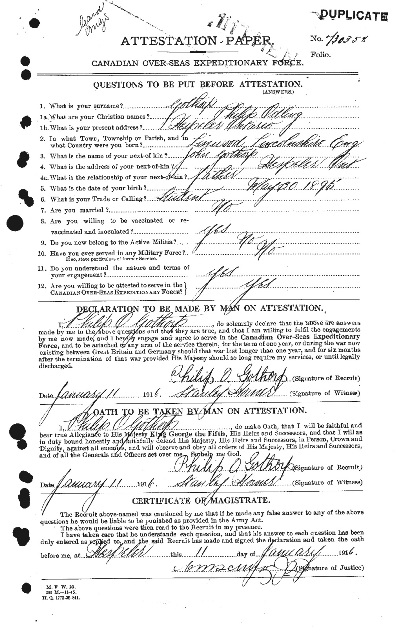 DUPLICATE
ATTESTATION PAPER.
No. 730352
Folio.
CANADIAN OVER-SEAS EXPEDITIONARY FORCE.
QUESTIONS TO BE PUT BEFORE ATTESTATION.
(ANSWERS)
1. What is your surname? Gothorp
1a. What are your Christian names? Philip
1b. What is your present address? Hespeler Ontario
2. In what Town, Township or Parish, and in
what Country were you born? Lincolnshire Eng
3. What is the name of your next-of-kin? John Gothorp
4. What is the address of your next-of-kin? Hespeler Ont
4a. What is the relationship of your next-of-kin? father
5. What is the date of your birth? May 30 1895
6. What is your Trade or Calling? Student
7. Are you married? No
8. Are you willing to be vaccinated or re-
vaccinated and inoculated? yes
9. Do you now belong to the Active Militia? No
10. Have you ever served in any Military Force? No
If so, state particulars of former Service.
11. Do you understand the nature and terms of
your engagement? yes
12. Are you willing to be attested to serve in the
CANADIAN OVER-SEAS EXPEDITIONARY FORCE? yes
DECLARATION TO BE MADE BY MAN ON ATTESTATION.
I, Philip O Gothorp, do solemnly declare that the above are answers
made by me to the above questions and that they are true, and that I am willing to fulfil the engagements
by me now made, and I hereby engage and agree to serve in the Canadian Over-Seas Expeditionary
Force, and to be attached to any arm of the service therein, for the term of one year, or during the war now
existing between Great Britain and Germany should that war last longer than one year, and for six months
after the termination of that war provided His Majesty should so long require my services, or until legally
discharged.
Philip O. Gothorp (Signature of Recruit)
Date January 11 1916 Stanley (Signature of Witness)
OATH TO BE TAKEN BY MAN ON ATTESTATION.
I, Philip O Gothorp, do make Oath, that I will be faithful and
bear true Allegiance to His Majesty King George the Fifth, His Heirs and Successors, and that I will as
in duty bound honestly and faithfully defend His Majesty, His Heirs and Successors, in Person, Crown and
Dignity, against all enemies, and will observe and obey all orders of His Majesty, His Heirs and Successors,
and of all the Generals and Officers set over me. So help me God.
Philip O Gothorp (Signature of Recruit)
Date January 11 1916 Stanley (Signature of Witness)
CERTIFICATE OF MAGISTRATE.
The Recruit above-named was cautioned by me that if he made any false answer to any of the above
questions he would be liable to be punished as provided in the Army Act.
The above questions were then read to the Recruit in my presence.
I have taken care that he understands each question, and that his answer to each question has been
duly entered as replied to, and the said Recruit has made and signed the declaration and taken the oath
before me, at Hespeler this 11 day of January 1916
(Signature of Justice)